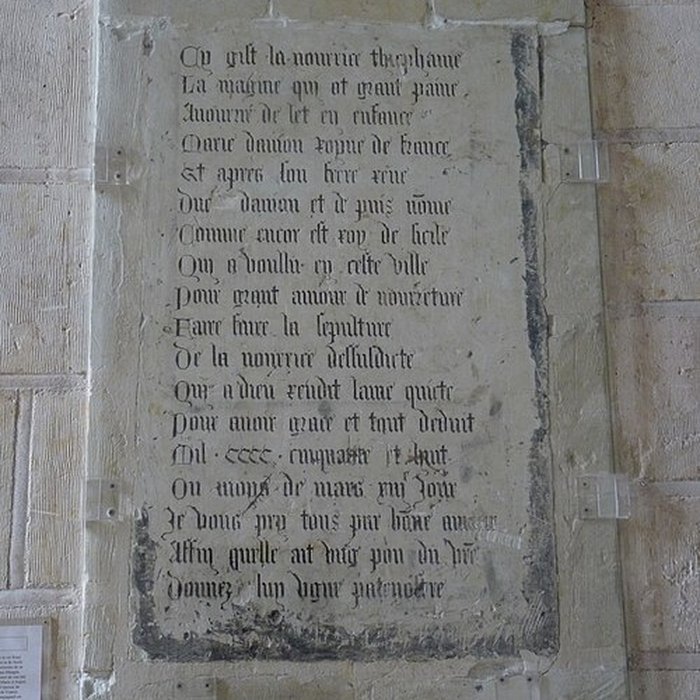 Cy gist la nourrice thiephaine
La magine qui ot grant paine
A nourrir de let en enfance
Marie daniou royne de france
Et apres son frere rene
Duc daniou et de puis nōme
Comme encor est roy de sicile
Qui a voullu en ceste ville
Pour grant amour de nourreture
Faire faire la sepulture
De la nourrice dessusdicte
Qui a dieu rendit lame quicte
Pour auoir grace et tout deduit
Mil cccc cinquante et huit
Ou moys de mars xiij Jour
Je vous pry tous par bōne amour
Affin quelle ait ung pou du vr̄e
Donnez luy ugne patenostre